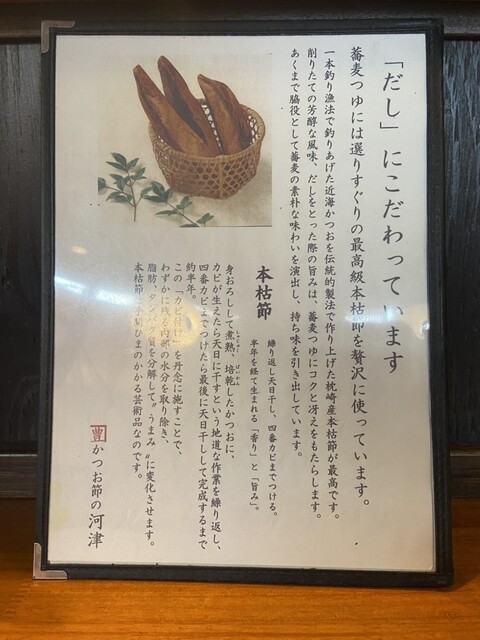 「だし」にこだわっています
蕎麦つゆには選りすぐりの最高級本枯節を贅沢に使っています。
一本釣り漁法で釣りあげた近海かつおを伝統的製法で作り上げた枕崎産本枯節が最高です。
削りたての芳醇な風味、だしをとった際の旨みは、蕎麦つゆにコクと冴えをもたらします。
あくまで脇役として蕎麦の素朴な味わいを演出し、持ち味を引き出しています。
本枯節
繰り返し天日干し、四番カビまでつける。
半年を経て生まれる「香り」と「旨み」。
身おろしして煮熟、培乾したかつおに、
しゃじゅく ばいかん
カビが生えたら天日に干すという地道な作業を繰り返し、
四番カビまでつけたら最後に天日干しして完成するまで
約半年。
この「カビ付け」を丹念に施すことで、
わずかに残る内部の水分を取り除き、
脂肪、タンパク質を分解して〝うまみ〟に変化させます。
本枯節は手間ひまのかかる芸術品なのです。
豊 かつお節の河津